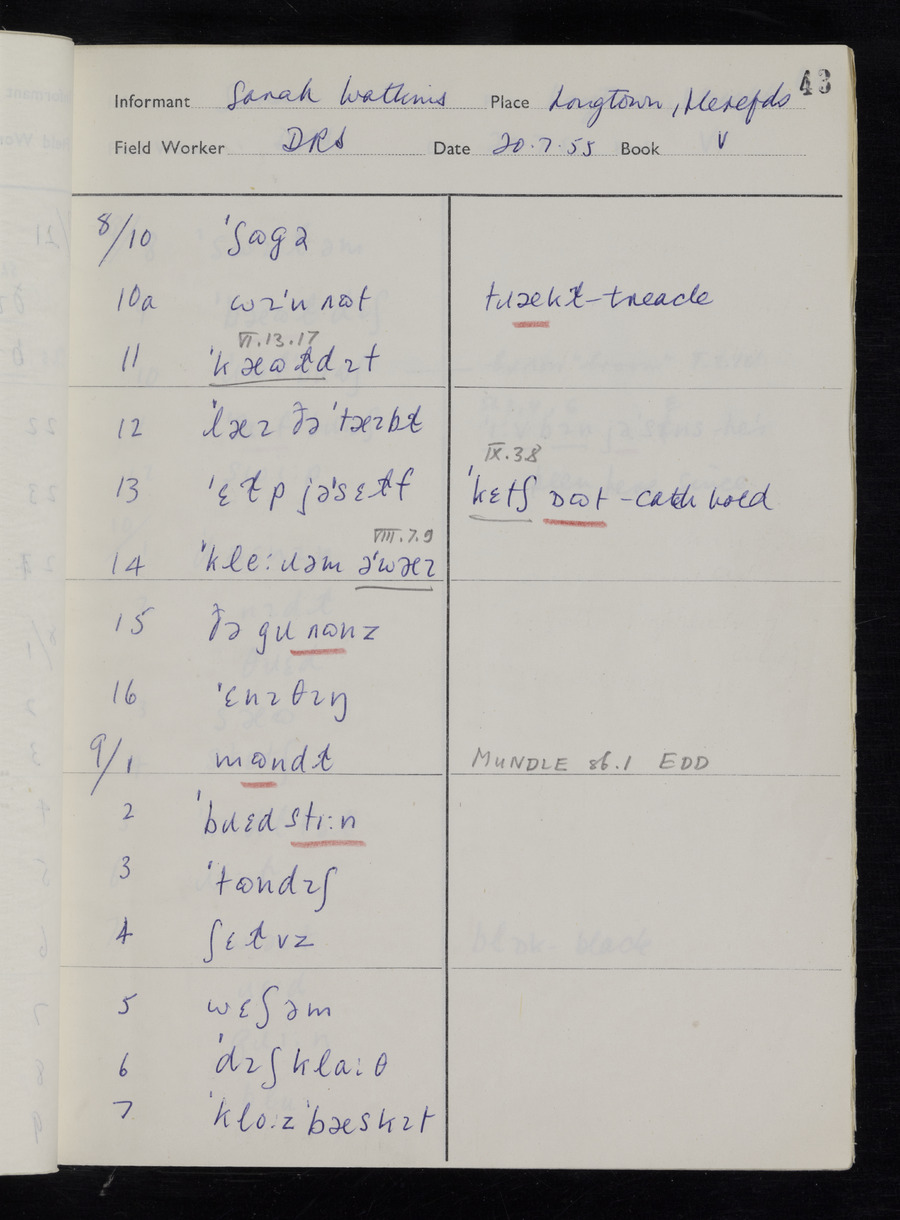 43
Informant Sarah Watkins Place Longtown, Herefds
Field Worker DRS Date 20.7.55 Book V
8/10 ˈʃɷgə
10a ɷɪˈɹɹɷt tɹækɫ–treacle
VI.13.17
11 ˈkæɷɫdɪt
12 ˈlæɪ ðəˈtæɪbɫ
IX.3.8
13 ˈɛɫp jəˈsɛɫf ˈkɛtʃ ɒɷt –catch hold
VIII.7.9
14 ˈkleːɹəm əˈwæɪ
15 ðə gɹɷnz
16 ˈɛnɪθɪŋ
9/1 mɷndɫ MUNDLE sb.1 EDD
2 ˈbɹɛd striːn
3 ˈtɷndɪʃ
4 ʃɛɫvz
5 wɛʃəm
6 ˈdɪʃklaːθ
7 ˈkloːzˈbæskɪt